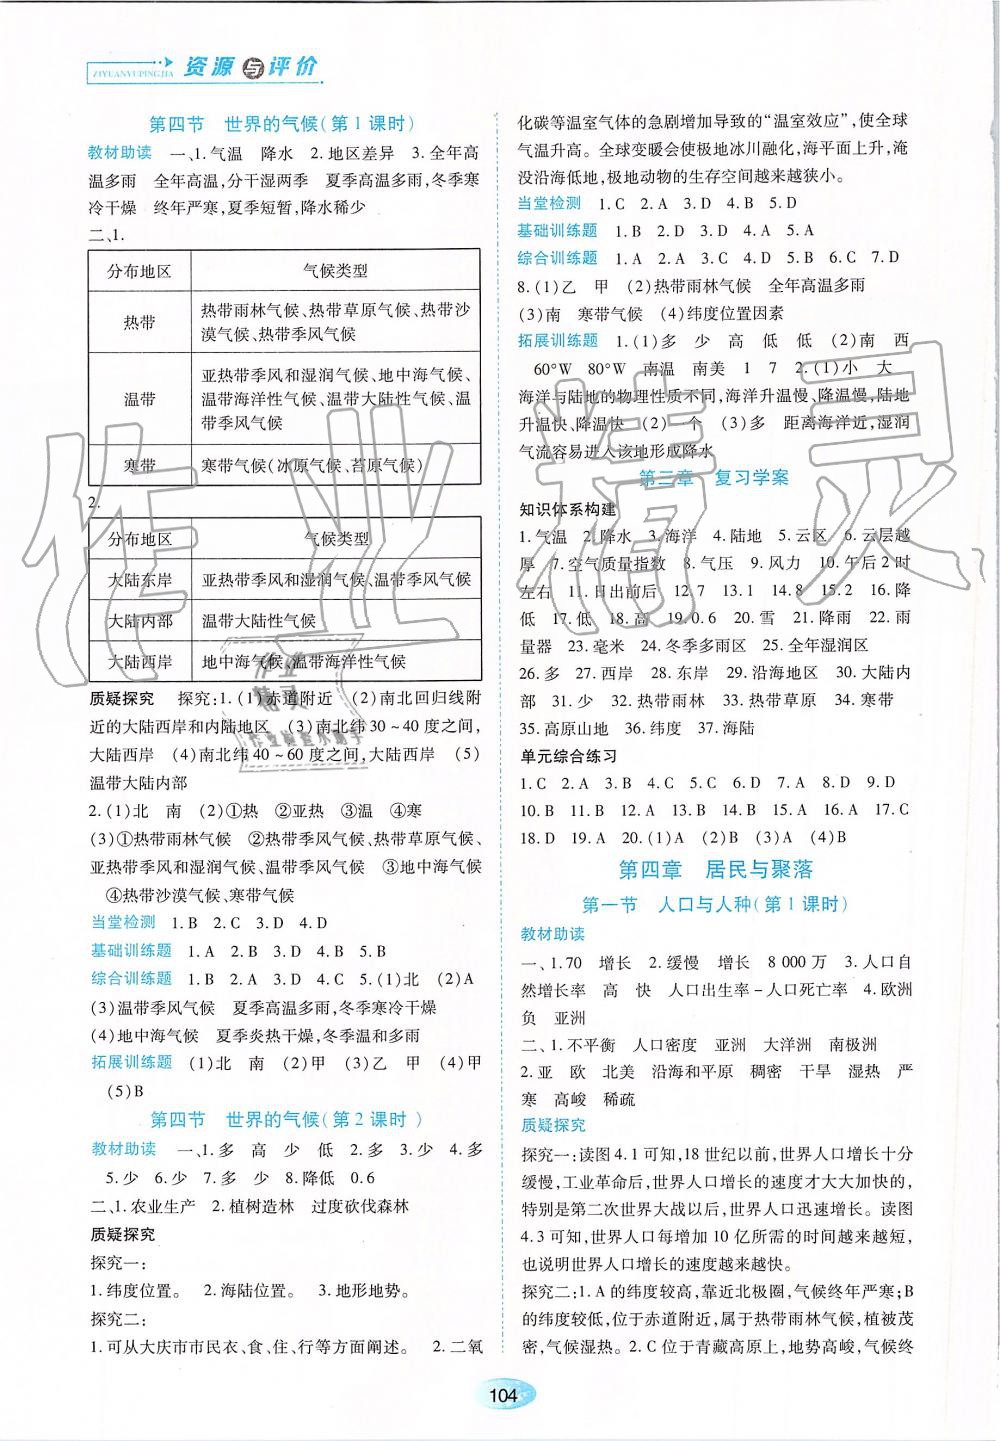 ZIYUANYUPINGJIA
资源与评价
第四节 世界的气候(第1课时)
教材助读 一、1.气温 降水 2.地区差异 3.全年高
温多雨 全年高温,分干湿两季 夏季高温多雨,冬季寒
冷干燥 终年严寒,夏季短暂,降水稀少
二、1.
分布地区 气候类型
热带 热带雨林气候、热带草原气候、热带沙
漠气候、热带季风气候
温带 亚热带季风和湿润气候、地中海气候、
温带海洋性气候、温带大陆性气候、温
带季风气候
寒带 寒带气候(冰原气候、苔原气候)
2.
分布地区 气候类型
大陆东岸 亚热带季风和湿润气候、温带季风气候
大陆内部 温带大陆性气候
大陆西岸 地中海气候、温带海洋性气候
质疑探究 探究:1.(1)赤道附近 (2)南北回归线附
近的大陆西岸和内陆地区 (3)南北纬30~40度之间,
大陆西岸 (4)南北纬40~60度之间,大陆西岸 (5)
温带大陆内部
2.(1)北 南 (2)①热 ②亚热 ③温 ④寒
(3)①热带雨林气候 ②热带季风气候、热带草原气候、
亚热带季风和湿润气候、温带季风气候 ③地中海气候
④热带沙漠气候、寒带气候
当堂检测 1.B 2.C 3.D 4.D
基础训练题 1.A 2.B 3.D 4.B 5.B
综合训练题 1.B 2.A 3.D 4.C 5.(1)北 (2)A
(3)温带季风气候 夏季高温多雨,冬季寒冷干燥
(4)地中海气候 夏季炎热干燥,冬季温和多雨
拓展训练题 (1)北 南 (2)甲 (3)乙 甲 (4)甲
(5)B
第四节 世界的气候(第2课时)
教材助读 一、1.多 高 少 低 2.多 3.少 4.多
5.少 6.少 7.多 少 8.降低 0.6
二、1.农业生产 2.植树造林 过度砍伐森林
质疑探究
探究一:
1.纬度位置。 2.海陆位置。 3.地形地势。
探究二:
1.可从大庆市市民衣、食、住、行等方面阐述。 2.二氧
化碳等温室气体的急剧增加导致的“温室效应”,使全球
气温升高。全球变暖会使极地冰川融化,海平面上升,淹
没沿海低地,极地动物的生存空间越来越狭小。
当堂检测 1.C 2.A 3.D 4.B 5.D
基础训练题 1.B 2.D 3.D 4.A 5.A
综合训练题 1.A 2.A 3.C 4.D 5.B 6.C 7.D
8.(1)乙 甲 (2)热带雨林气候 全年高温多雨
(3)南 寒带气候 (4)纬度位置因素
拓展训练题 1.(1)多 少 高 低 低 (2)南 西
60°W 80°W 南温 南美 1 7 2.(1)小 大
海洋与陆地的物理性质不同,海洋升温慢、降温慢,陆地
升温快、降温快 (2)一个 (3)多 距离海洋近,湿润
气流容易进入该地形成降水
第三章 复习学案
知识体系构建
1.气温 2.降水 3.海洋 4.陆地 5.云区 6.云层越
厚 7.空气质量指数 8.气压 9.风力 10.午后2时
左右 11.日出前后 12.7 13.1 14.8 15.2 16.降
低 17.低 18.高 19.0.6 20.雪 21.降雨 22.雨
量器 23.毫米 24.冬季多雨区 25.全年湿润区
26.多 27.西岸 28.东岸 29.沿海地区 30.大陆内
部 31.少 32.热带雨林 33.热带草原 34.寒带
35.高原山地 36.纬度 37.海陆
单元综合练习
1.C 2.A 3.B 4.C 5.C 6.D 7.A 8.D 9.D
10.B 11.B 12.A 13.B 14.B 15.A 16.A 17.C
18.D 19.A 20.(1)A (2)B (3)A (4)B
第四章 居民与聚落
第一节 人口与人种(第1课时)
教材助读
一、1.70 增长 2.缓慢 增长 8 000万 3.人口自
然增长率 高 快 人口出生率-人口死亡率 4.欧洲
负 亚洲
二、1.不平衡 人口密度 亚洲 大洋洲 南极洲
2.亚 欧 北美 沿海和平原 稠密 干旱 湿热 严
寒 高峻 稀疏
质疑探究
探究一:读图4.1可知,18世纪以前,世界人口增长十分
缓慢,工业革命后,世界人口增长的速度才大大加快的,
特别是第二次世界大战以后,世界人口迅速增长。读图
4.3可知,世界人口每增加10亿所需的时间越来越短,
也说明世界人口增长的速度越来越快。
探究二:1.A的纬度较高,靠近北极圈,气候终年严寒;B
的纬度较低,位于赤道附近,属于热带雨林气候,植被茂
密,气候湿热。2.C位于青藏高原上,地势高峻,气候终
104
作业精灵
作业
精灵